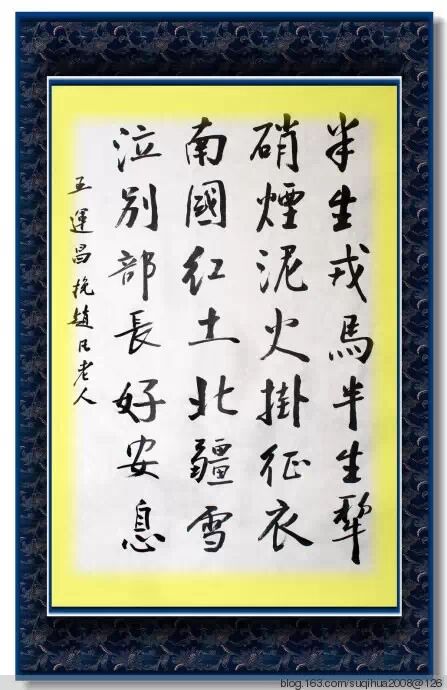 半生戎馬半生犂
硝煙泥火掛征衣
南國紅土北疆雪
泣別部長好安息
王運昌挽趙凡老人
blog.163.com/suqihua2008@126